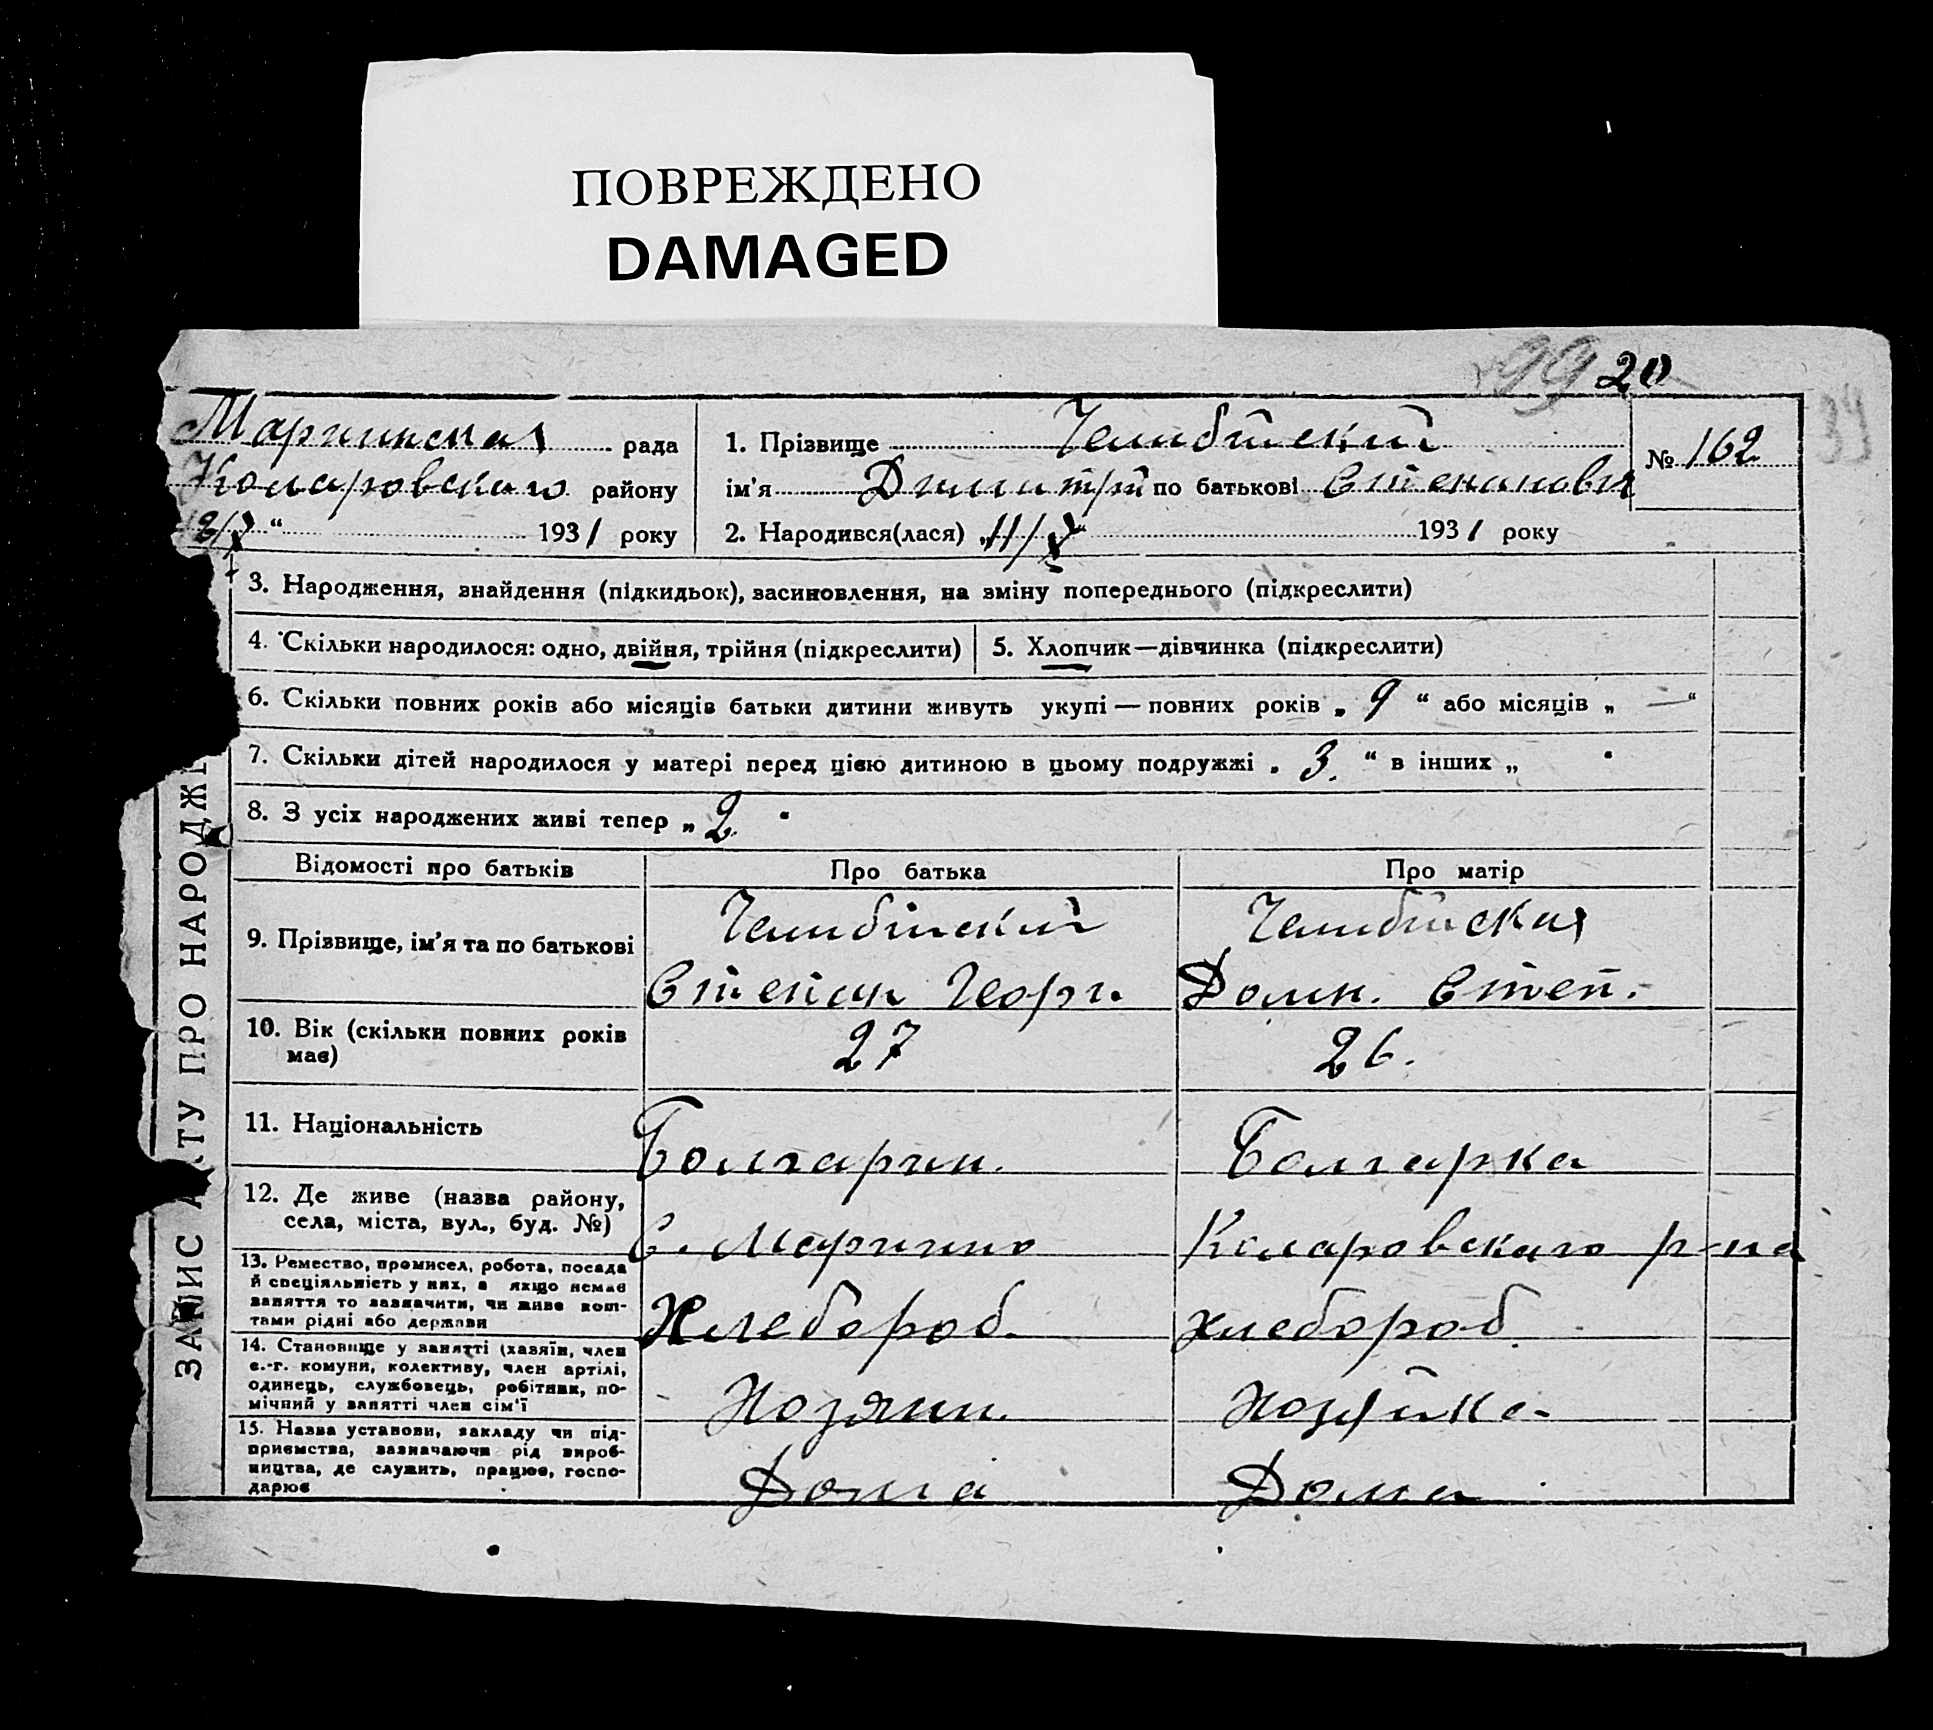 ПОВРЕЖДЕНО
DAMAGED
99 20
39
Мариинская рада
Коларовского району
12/X " 1931 року
1. Прізвище Челибійский
ім'я Дмитрй по батькові Степанович
№ 162
2. Народився(лася) „11/X" 1931 року
3. Народження, знайдення (підкидьок), засиновлення, на зміну попереднього (підкреслити)
4. Скільки народилося: одно, двійня, трійня (підкреслити)
5. Хлопчик—дівчинка (підкреслити)
6. Скільки повних років або місяців батьки дитини живуть укупі — повних років „ 9 “ або місяців „ — “
7. Скільки дітей народилося у матері перед цією дитиною в цьому подружжі „ 3. “ в інших „ “
8. З усіх народжених живі тепер „ 2. “
Відомості про батьків Про батька Про матір
9. Прізвище, ім'я та по батькові
Челибійский Челибийская
Степан Георг. Домн. Степ.
10. Вік (скільки повних років має)
27 26.
11. Національність
Болгарин. Болгарка
12. Де живе (назва району,
села, міста, вул., буд. №)
С. Марино Коларовского р-на
13. Ремество, промисел, робота, посада
й спеціяльність у них, а якщо немає
заняття то зазначити, чи живе кош-
тами рідні або держави
Хлебороб. Хлебороб
14. Становище у занятті (хазяїн, член
с.-г. комуни, колективу, член артілі,
одинець, службовець, робітник, по-
мічний у занятті член сім'ї
Хозяин. Хозяйка
15. Назва установи, закладу чи під-
приємства, зазначаючи рід вироб-
ництва, де служить, працює, госпо-
дарює
Дома Дома
ЗАПИС АКТУ ПРО НАРОДЖ